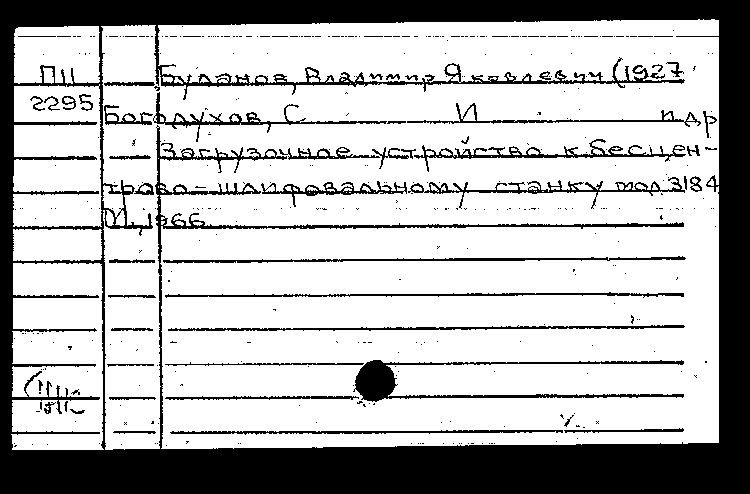 П11
2295
Буланов, Владимир Яковлевич (1927
Богодухов, С И и др
Загрузочное устройство к бесцен-
трово-шлифовальному станку мод 3184
М., 1966